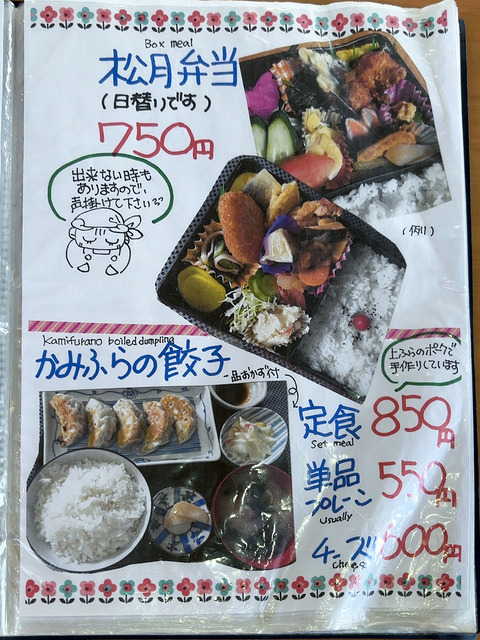 Box meal
松月弁当
(日替りです)
750円
出来ない時も
ありますので、
声掛けて下さい
(例)
Kamifurano boiled dumpling
かみふらの餃子
一品おかず付
上ふらのポークで
手作りしています
定食 850円
Set meal
単品
プレーン 550円
usually
チーズ 600円
cheese